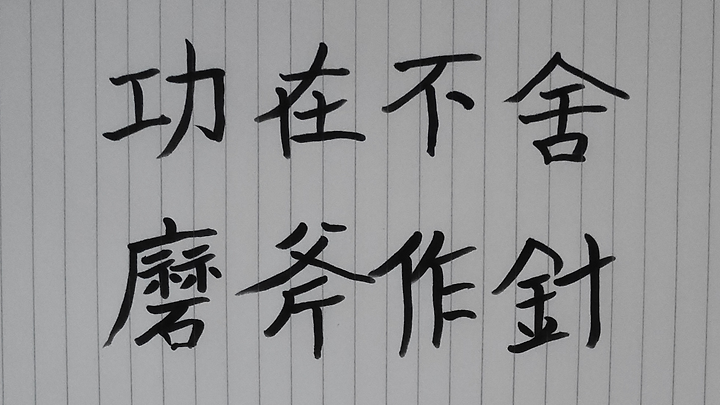 功在不舍
磨斧作針